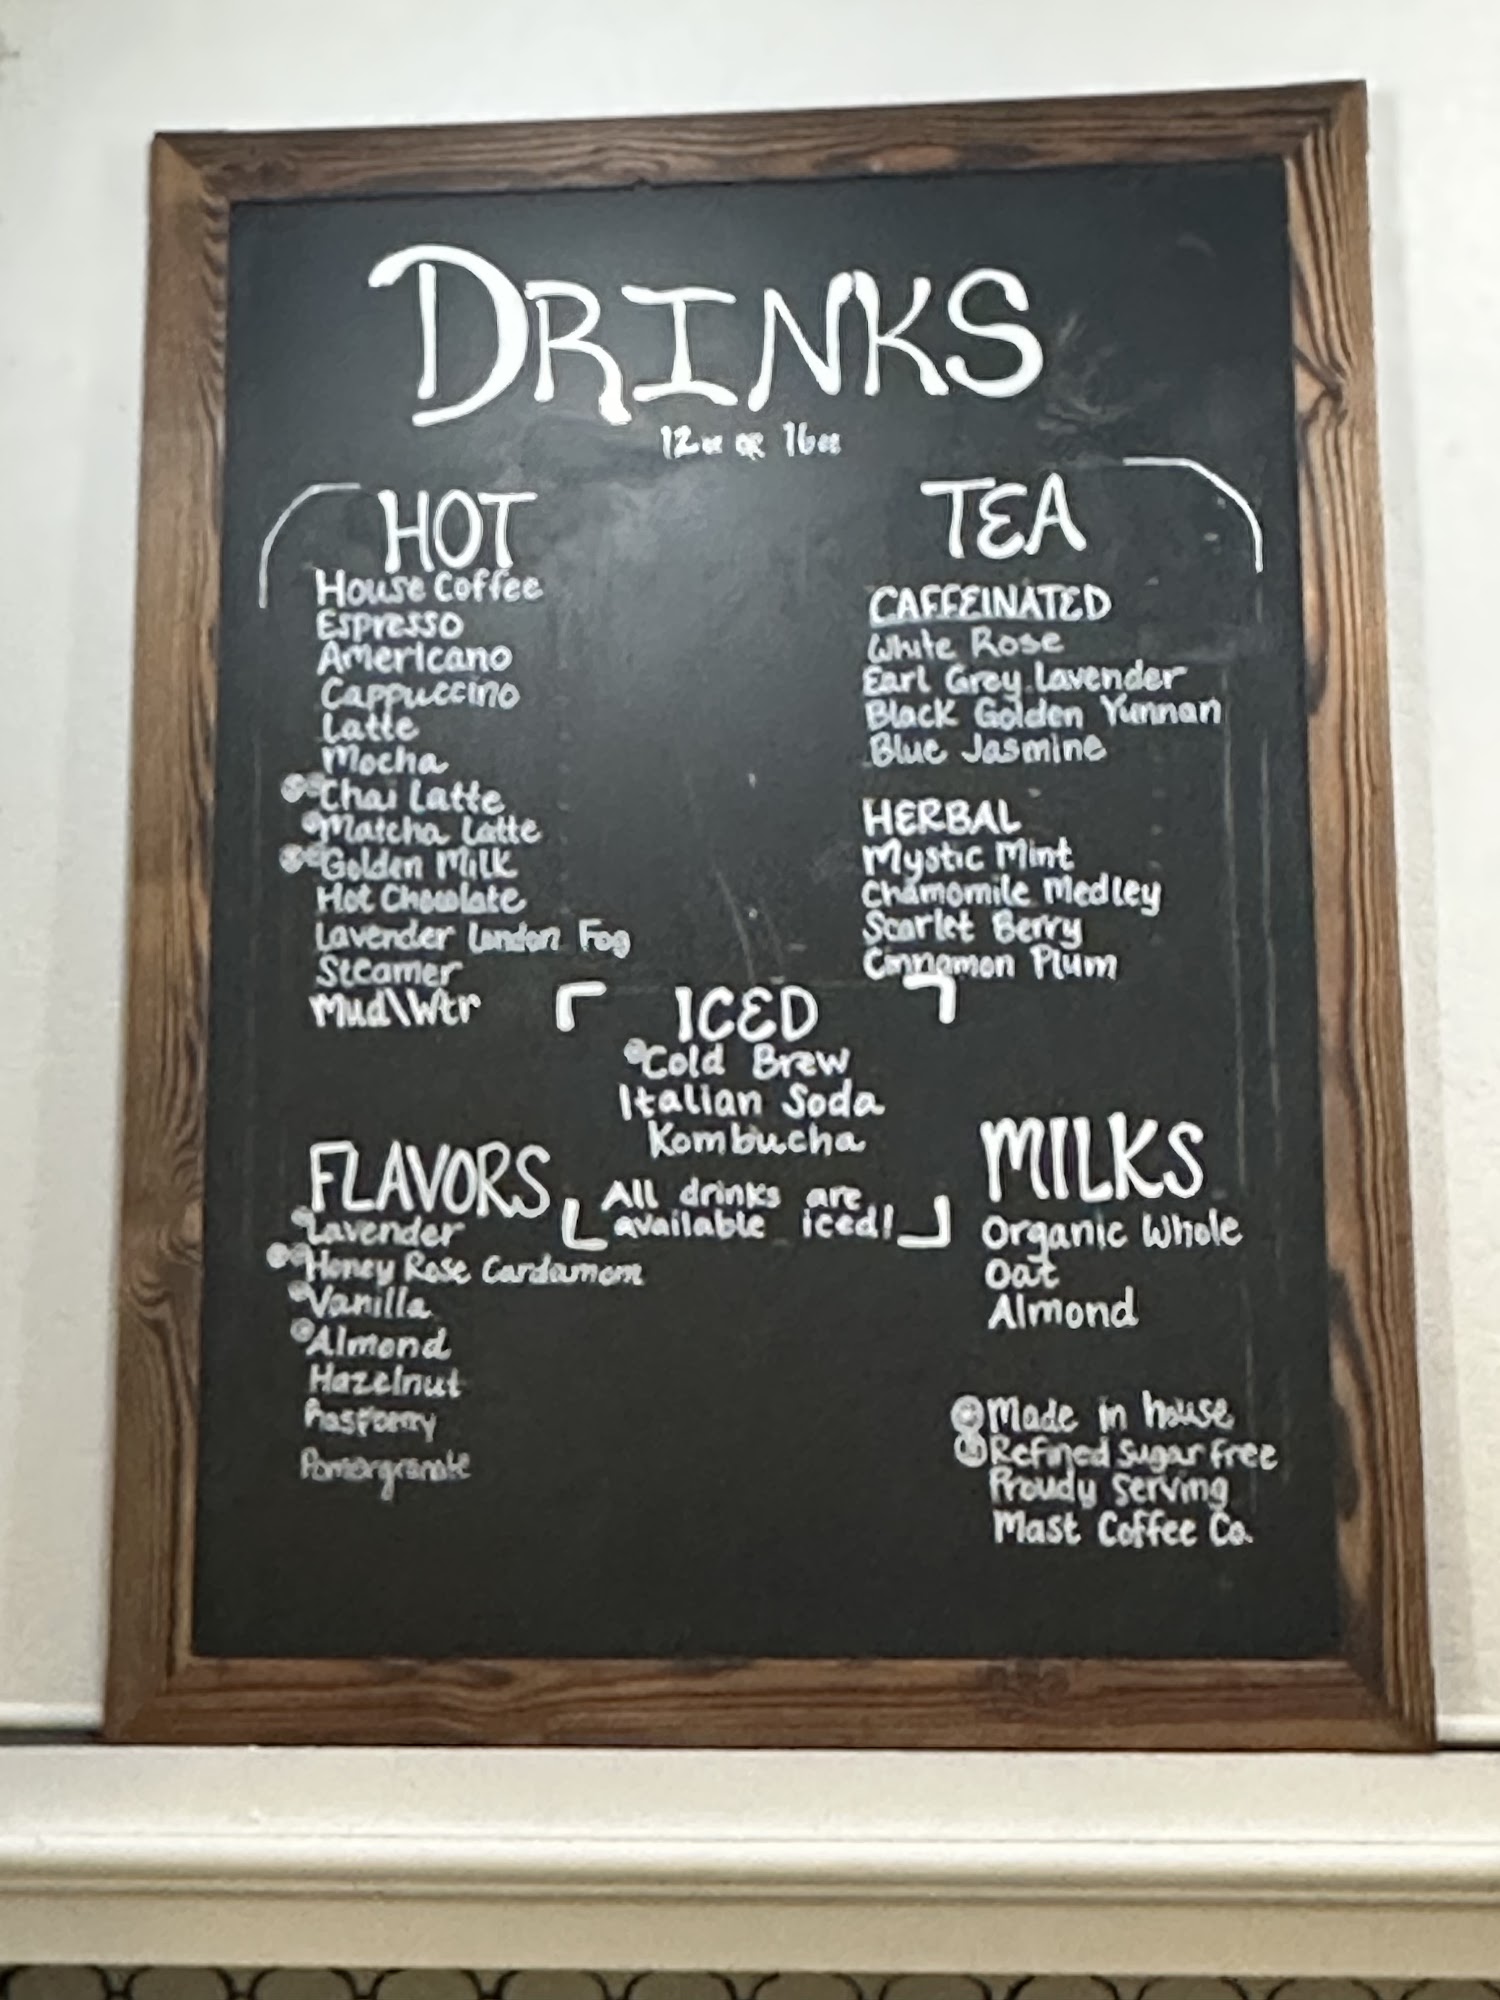 DRINKS
12oz OR 16oz
HOT
House Coffee
Espresso
Americano
Cappuccino
Latte
Mocha
Chai Latte
Matcha Latte
Golden Milk
Hot Chocolate
Lavender London Fog
Steamer
Mud\Wtr
TEA
CAFFEINATED
White Rose
Earl Grey Lavender
Black Golden Yunnan
Blue Jasmine
HERBAL
Mystic Mint
Chamomile Medley
Scarlet Berry
Cinnamon Plum
ICED
Cold Brew
Italian Soda
Kombucha
All drinks are
available iced!
FLAVORS
Lavender
Honey Rose Cardamom
Vanilla
Almond
Hazelnut
Raspberry
MILKS
Organic Whole
Oat
Almond
Made in house
Refined Sugar free
Proudly Serving
Mast Coffee Co.